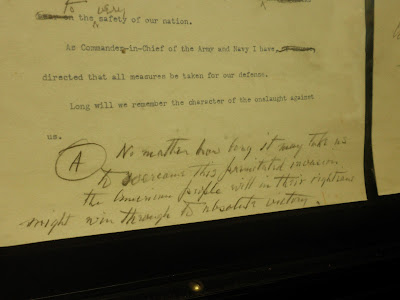 to very
the safety of our nation.
As Commander-in-Chief of the Army and Navy I have
directed that all measures be taken for our defense.
Long will we remember the character of the onslaught against
us.
A No matter how long it may take us
to overcome this premeditated invasion
the American people will in their righteous
might win through to absolute victory.